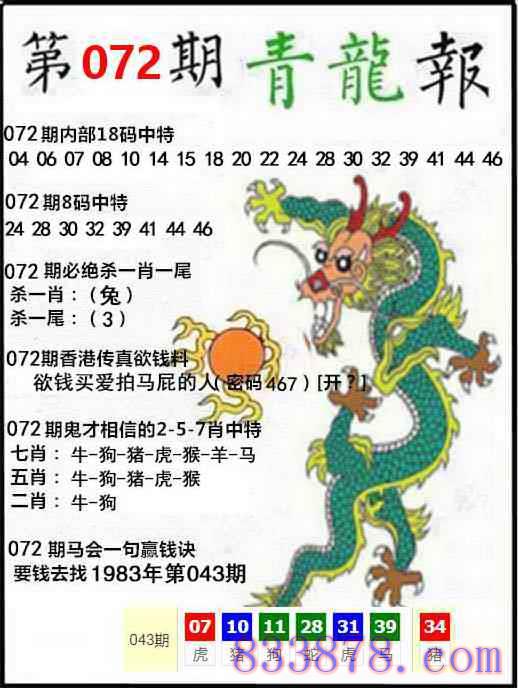 第072期 青龍報
072期内部18码中特
04 06 07 08 10 14 15 18 20 22 24 28 30 32 39 41 44 46
072期8码中特
24 28 30 32 39 41 44 46
072 期必绝杀一肖一尾
杀一肖：（兔）
杀一尾：（3）
072期香港传真欲钱料
欲钱买爱拍马屁的人(密码467)[开？]
072期鬼才相信的2-5-7肖中特
七肖：牛-狗-猪-虎-猴-羊-马
五肖：牛-狗-猪-虎-猴
二肖：牛-狗
072 期马会一句赢钱诀
要钱去找1983年第043期
043期 07 10 11 28 31 39 34
虎 猪 狗 蛇 虎 马 猪
833878.com